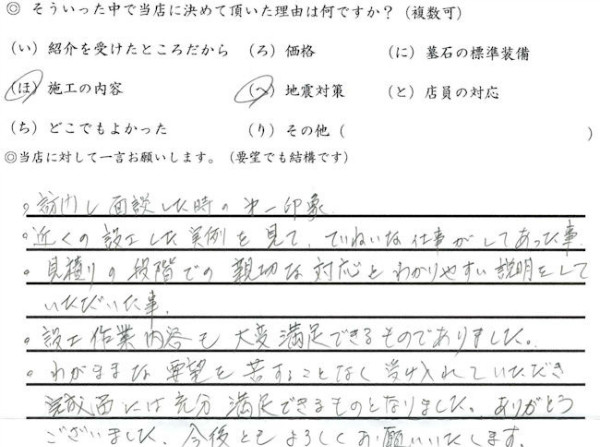 ◎ そういった中で当店に決めて頂いた理由は何ですか？（複数可）
（い）紹介を受けたところだから （ろ）価格 （に）墓石の標準装備
（ほ）施工の内容 （へ）地震対策 （と）店員の対応
（ち）どこでもよかった （り）その他（ ）
◎当店に対して一言お願いします。（要望でも結構です）
。訪問し面談した時の第一印象
。近くの設工した実例を見て、ていねいな仕事がしてあった事
。見積りの段階での親切な対応とわかりやすい説明をして
いただいた事。
。設工作業内容も大変満足できるものでありました。
。わがままな要望を苦することなく受け入れていただき
完成面には充分満足できるものとなりました。ありがとう
ございました。今後ともよろしくお願いいたします。